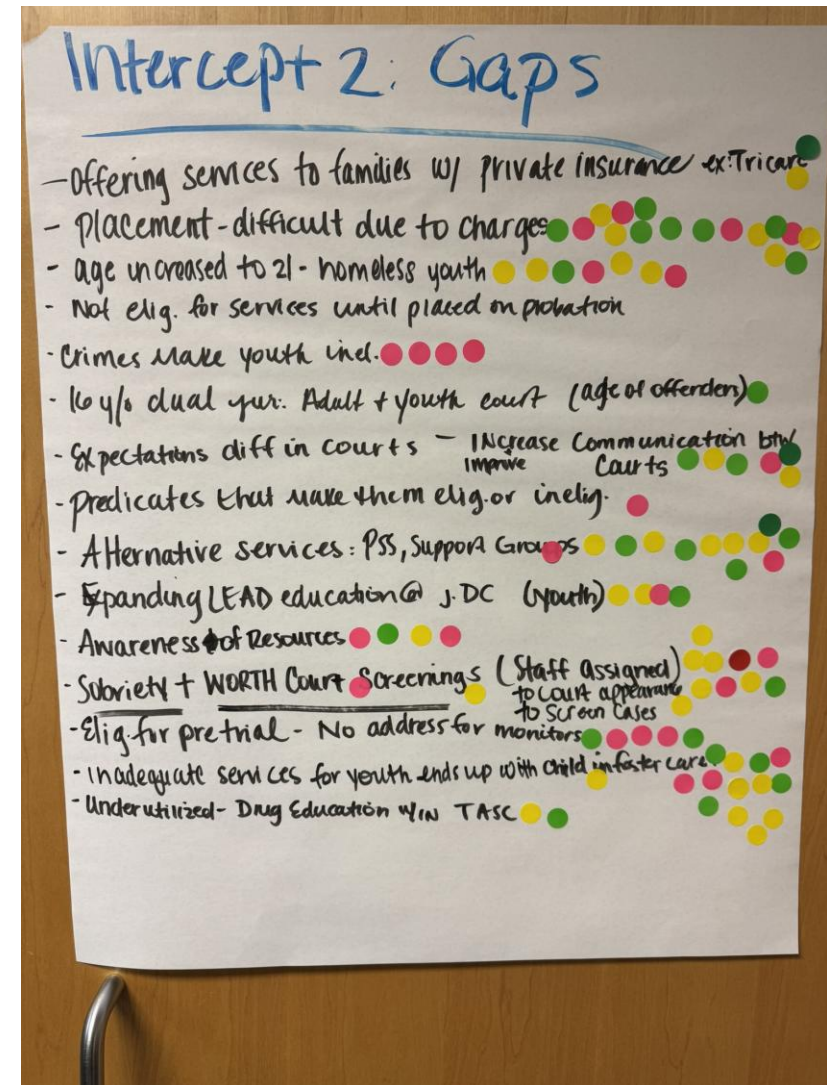 Intercept 2: Gaps
- Offering services to families w/ private insurance ex: Tricare
- Placement - difficult due to charges
- age increased to 21 - homeless youth
- Not elig. for services until placed on probation
- Crimes make youth inel.
- 16 y/o dual jur. Adult + youth court (age of offender)
- Expectations diff in courts - Increase Communication btw/
Improve Courts
- Predicates that make them elig. or inelig.
- Alternative services: PSS, Support Groups
- Expanding LEAD education @ J.DC (youth)
- Awareness of Resources
- Sobriety + WORTH Court Screenings (Staff assigned)
to court appearance
to screen cases
- Elig. for pretrial - No address for monitors
- Inadequate services for youth ends up with child in foster care
- Underutilized - Drug Education w/in TASC